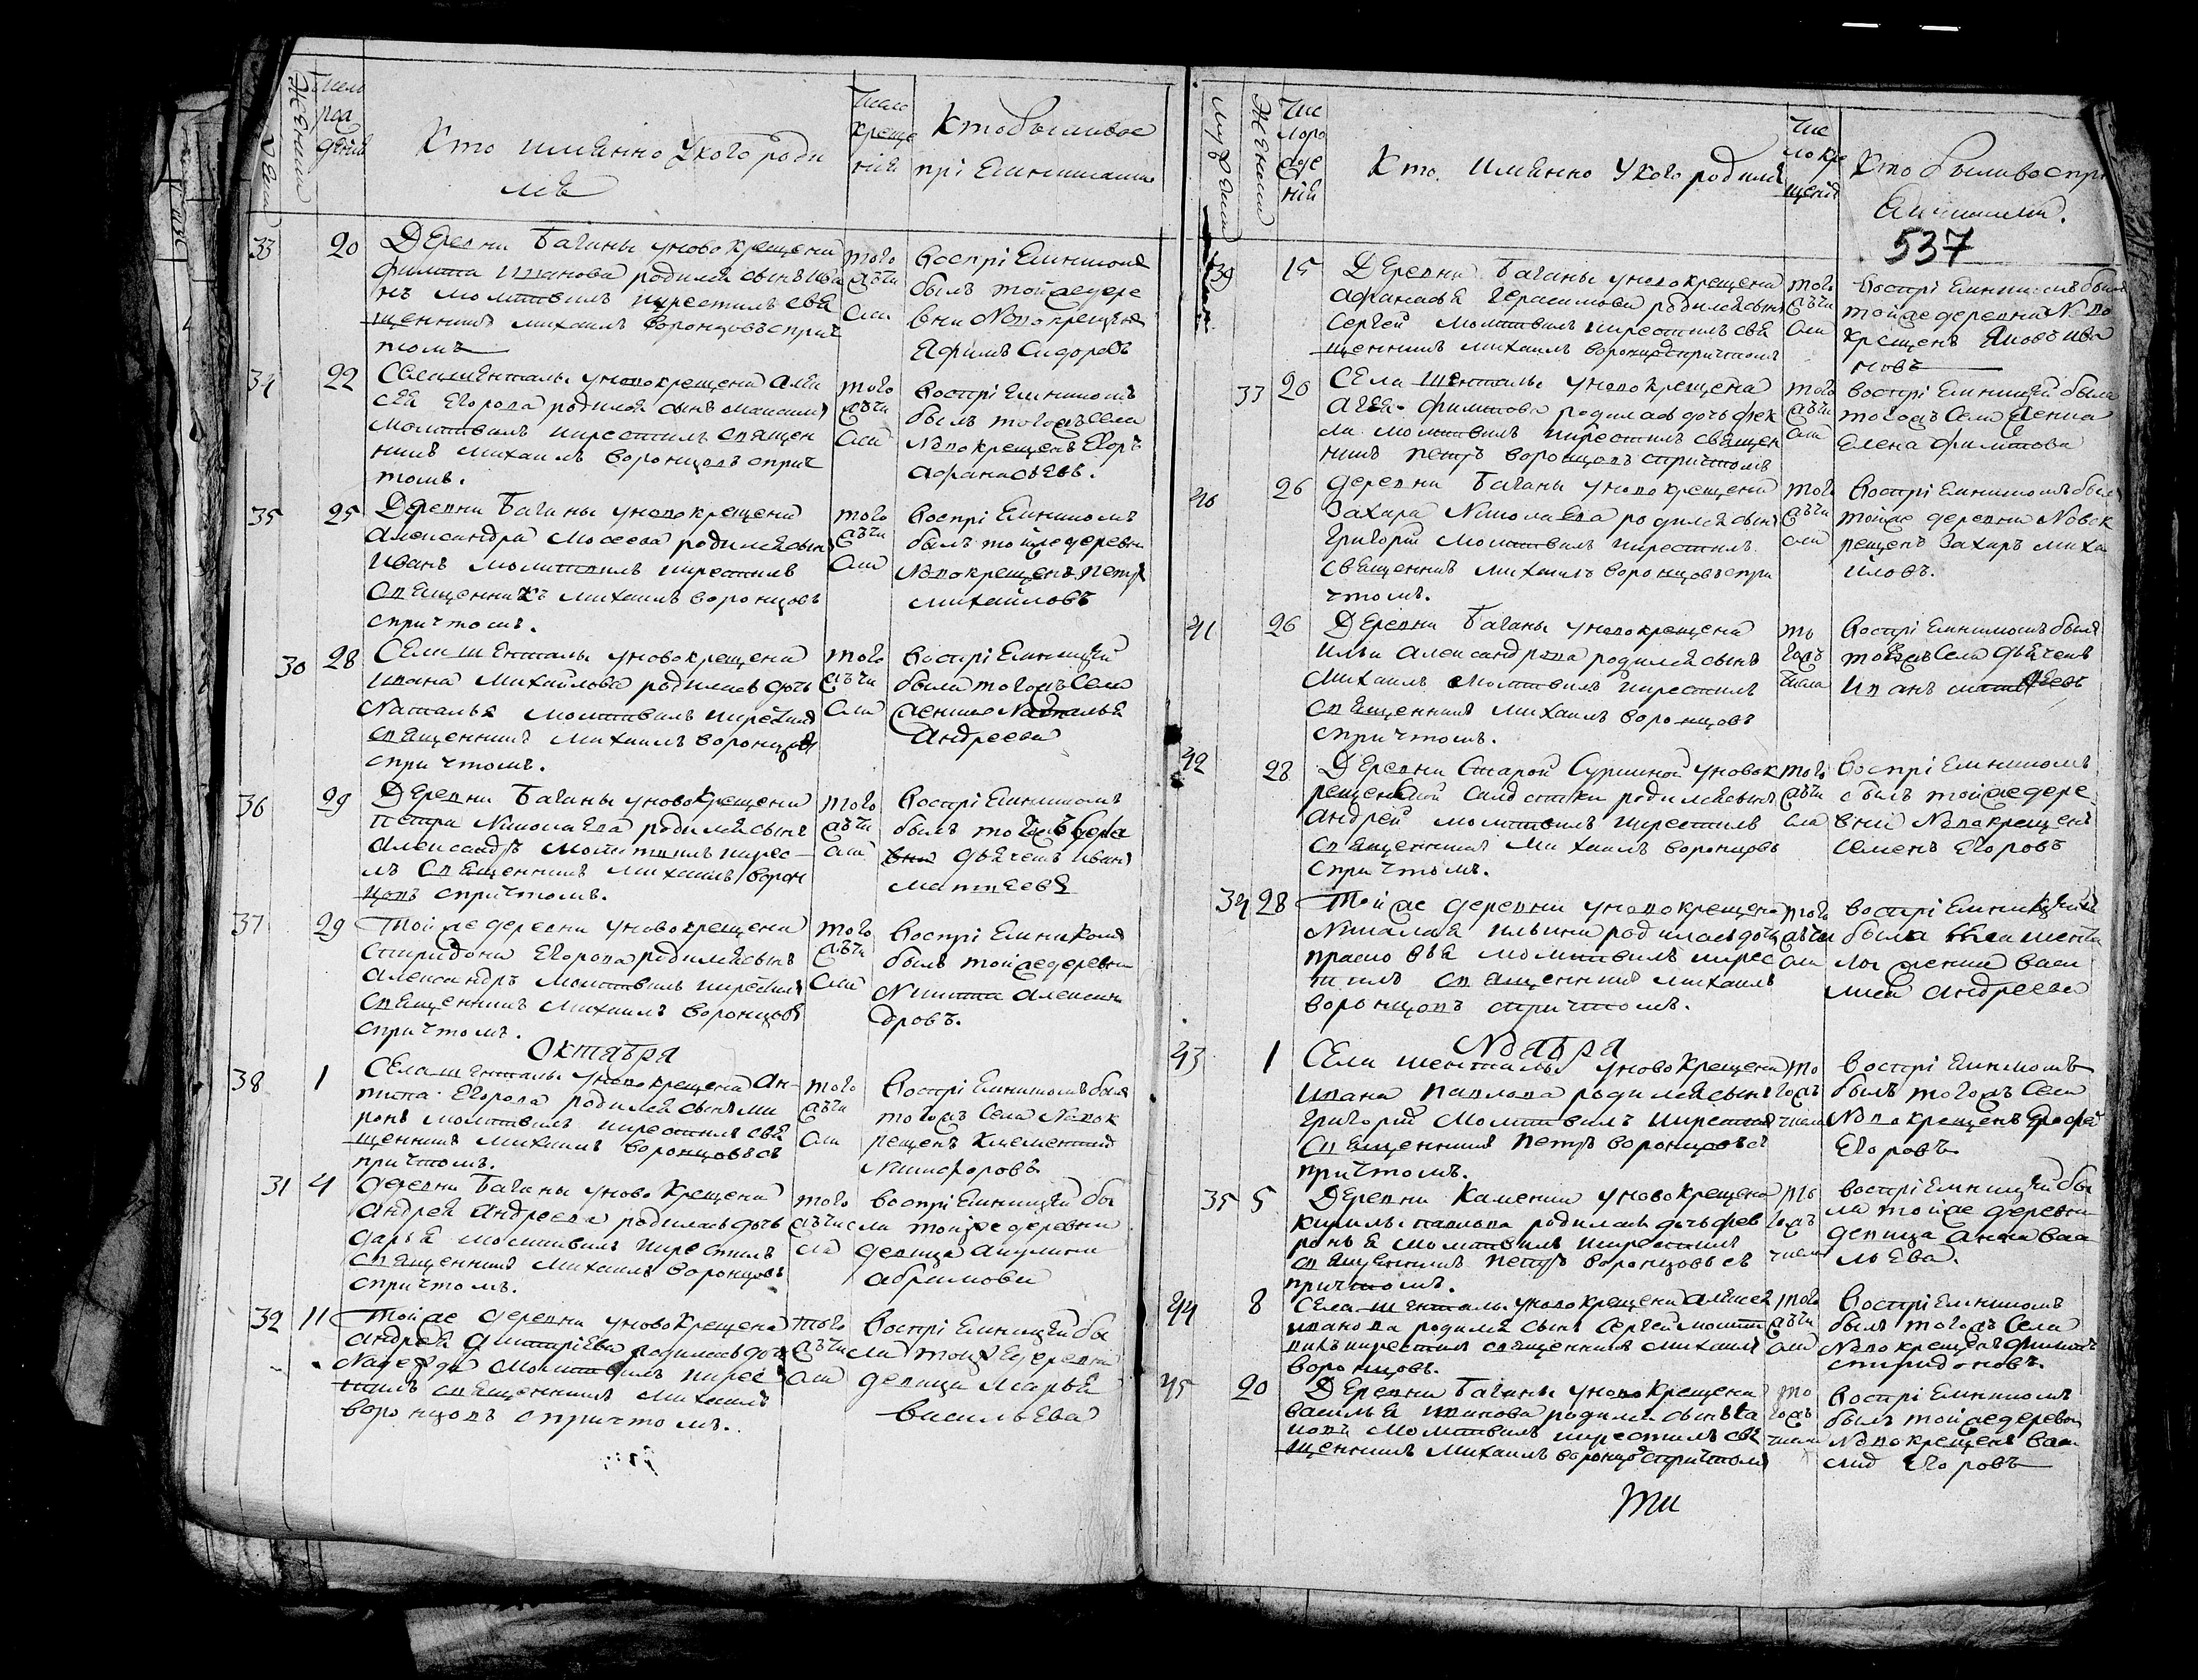 Женска
Число
рож
денія
Кто имянно Укого роди
лсъ
Число
креще
нія
Кто был вос
прі Емниками
33
20
ДЕревни Баганы уновокрещена
филипа иванова родился сынъ ива
нъ молитвилъ икрестилъ свя
щенникъ михаилъ воронцовъ сприч
томъ
того
аъчи
сла
воспрі Емникомъ
былъ тойже дере
вни Новокрещенъ
Ефимъ Сидоровъ
34
22
Села шЕнталы уновокрещена але
сея Егорова родился сынъ
молитвилъ икрестилъ священ
никъ михаилъ воронцовъ сприч
томъ.
того
аъчи
сла
воспрі Емникомъ
былъ тогожъ села
Новокрещенъ Егоръ
афанасьЕвъ.
35
25
ДЕревни Баганы уновокрещена
александра мосеева родился сынъ
иванъ молитвилъ икрестилъ
свящЕнникъ михаилъ воронцовъ
спричтомъ.
того
аъчи
сла
воспрі Емникомъ
былъ тойже деревни
Новокрещенъ петръ
михайловъ
30
28
СЕла шЕнталы уновокрещена
ивана михайлова родилась дочь
Наталья молитвилъ икрестилъ
священникъ михаилъ воронцовъ
спричтомъ.
того
аъчи
сла
воспрі Емницей
была тогожъ села
женка Наталья
андреева
36
29
ДЕревни Баганы уновокрещена
петра Николаева родился сынъ
александръ молитвилъ икрес
лъ священникъ михаилъ ворон
цовъ спричтомъ.
того
аъчи
сла
воспрі Емникомъ
былъ
дьячекъ иванъ
матвеевъ
37
29
Тойже деревни уновокрещена
спиридона Егорова родился сынъ
александръ молитвилъ икрестилъ
священникъ михаилъ воронцовъ
спричтомъ.
того
аъчи
сла
воспрі Емникомъ
былъ тойже деревни
Никита алексан
дровъ.
Октября
38
1
СЕла шЕнталы уновокрещена ан
типа Егорова родился сынъ ми
ронъ молитвилъ икрестилъ свя
щенникъ михаилъ воронцовъ съ
причтомъ.
того
аъчи
сла
воспрі Емникомъ былъ
тогожъ села Новок
рещенъ климентий
Никифоровъ
31
4
деревни Баганы уновокрещена
андрея андреева родилась дочь
дарья молитвилъ икрестилъ
священникъ михаилъ воронцовъ
спричтомъ.
того
аъчис
ла
воспрі Емницей бы
ла тойже деревни
девица акулина
абрамова
32
11
Тойже деревни уновокрещена
андрея дмитріЕва родилась дочь
Надежда молитвилъ икрес
тилъ священникъ михаилъ
воронцовъ спричтомъ.
того
аъчи
сла
воспрі Емницей бы
ла тойже деревни
девица марья
васильЕва
мужЕска
женска
Чис
лоро
жде
нія
Кто. имянно Укого родилсъ
Чис
ло кре
щенія
Кто былъ воспрі
Емникомъ.
537
39
15
ДЕревни Баганы уновокрещена
афанасья герасимова родился сынъ
сергей молитвилъ икрестилъ свя
щенникъ михаилъ воронцовъ спричтомъ
того
аъчи
сла
воспрі Емникомъ былъ
тойже деревни Ново
крещенъ Яковъ ива
новъ
33
20
СЕла шЕнталы уновокрещена
агея филипова родилась дочь фек
ла молитвилъ икрестилъ священ
никъ петръ воронцовъ спричтомъ
того
аъчи
сла
воспрі Емницей была
тогожъ села женка
Елена филипова
40
26
деревни Баганы уновокрещена
захара Николаева родился сынъ
григорій молитвилъ икрестилъ
священникъ михаилъ воронцовъ спри
чтомъ.
того
аъчи
сла
воспрі Емникомъ былъ
тойже деревни Новок
рещенъ захаръ миха
йловъ.
41
26
ДЕревни Баганы уновокрещена
ильи александрова родился сынъ
михаилъ молитвилъ икрестилъ
священникъ михаилъ воронцовъ
спричтомъ.
то
гожъ
числа
воспрі Емникомъ былъ
тогожъ села дьячекъ
иванъ матвеевъ
42
28
ДЕревни Старой Суркиной уновок
рещена родился сынъ
андрей молитвилъ икрестилъ
священникъ михаилъ воронцовъ
спричтомъ.
того
аъчи
сла
воспрі Емникомъ
былъ тойже дере
вни Новокрещенъ
семенъ Егоровъ
34
28
Тойже деревни уновокрещена
Николая ильина родилась дочь
прасковья молитвилъ икрес
тилъ священникъ михаилъ
воронцовъ спричтомъ.
того
аъчи
сла
воспрі Емницей
была села шента
лы женка васи
лиса андреева
Ноября
43
1
СЕла шенталы уновокрещена
ивана павлова родился сынъ
григорій молитвилъ икрестилъ
священникъ петръ воронцовъ съ
причтомъ.
то
гожъ
числа
воспрі Емникомъ
былъ тогожъ села
Новокрещенъ Ерофей
Егоровъ
35
5
ДЕревни Каменки уновокрещена
кирилы павлова родилась дочь фев
ронья молитвилъ икрестилъ
священникъ петръ воронцовъ съ
причтомъ.
то
гожъ
числа
воспрі Емницей бы
ла тойже деревни
девица анна васи
льЕва.
44
8
Села шЕнталы уновокрещена алексея
иванова родился сынъ сергей молит
вилъ икрестилъ священникъ михаилъ
воронцовъ.
того
аъчи
сла
воспрі Емникомъ
былъ тогожъ села
Новокрещенъ филипъ
спиридоновъ.
45
20
ДЕревни Баганы уновокрещена
василья иванова родился сынъ
молитвилъ икрестилъ свя
щенникъ михаилъ воронцовъ спричтомъ
то
гожъ
числа
воспрі Емникомъ
былъ тойже деревни
Новокрещенъ васи
лий Егоровъ